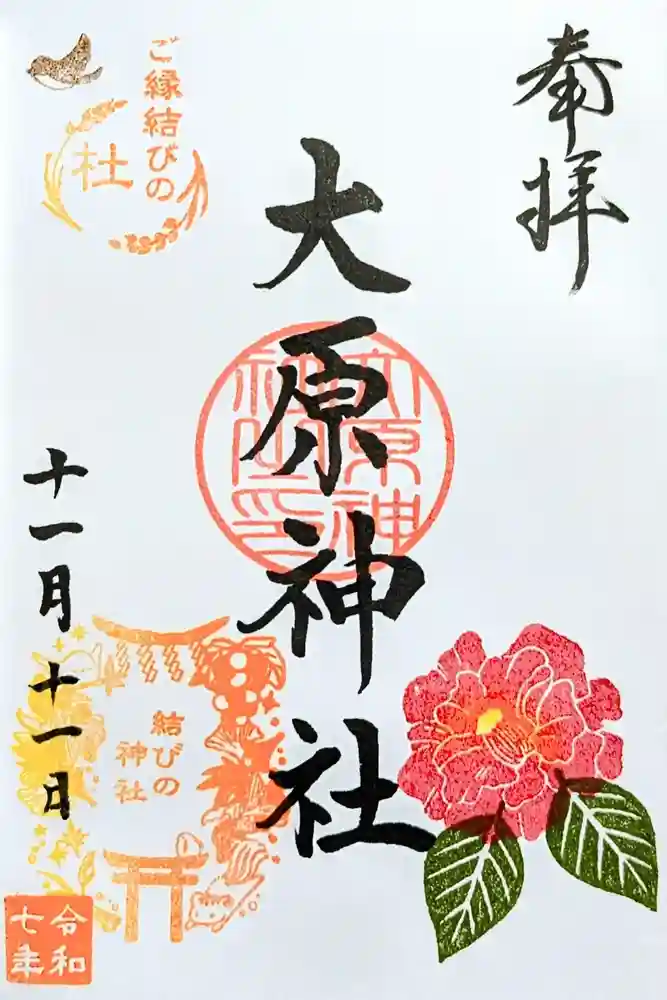 奉拝
大原神社
大原神
社之印
ご縁結びの
杜
十一月十一日
結びの
神社
令和
七年